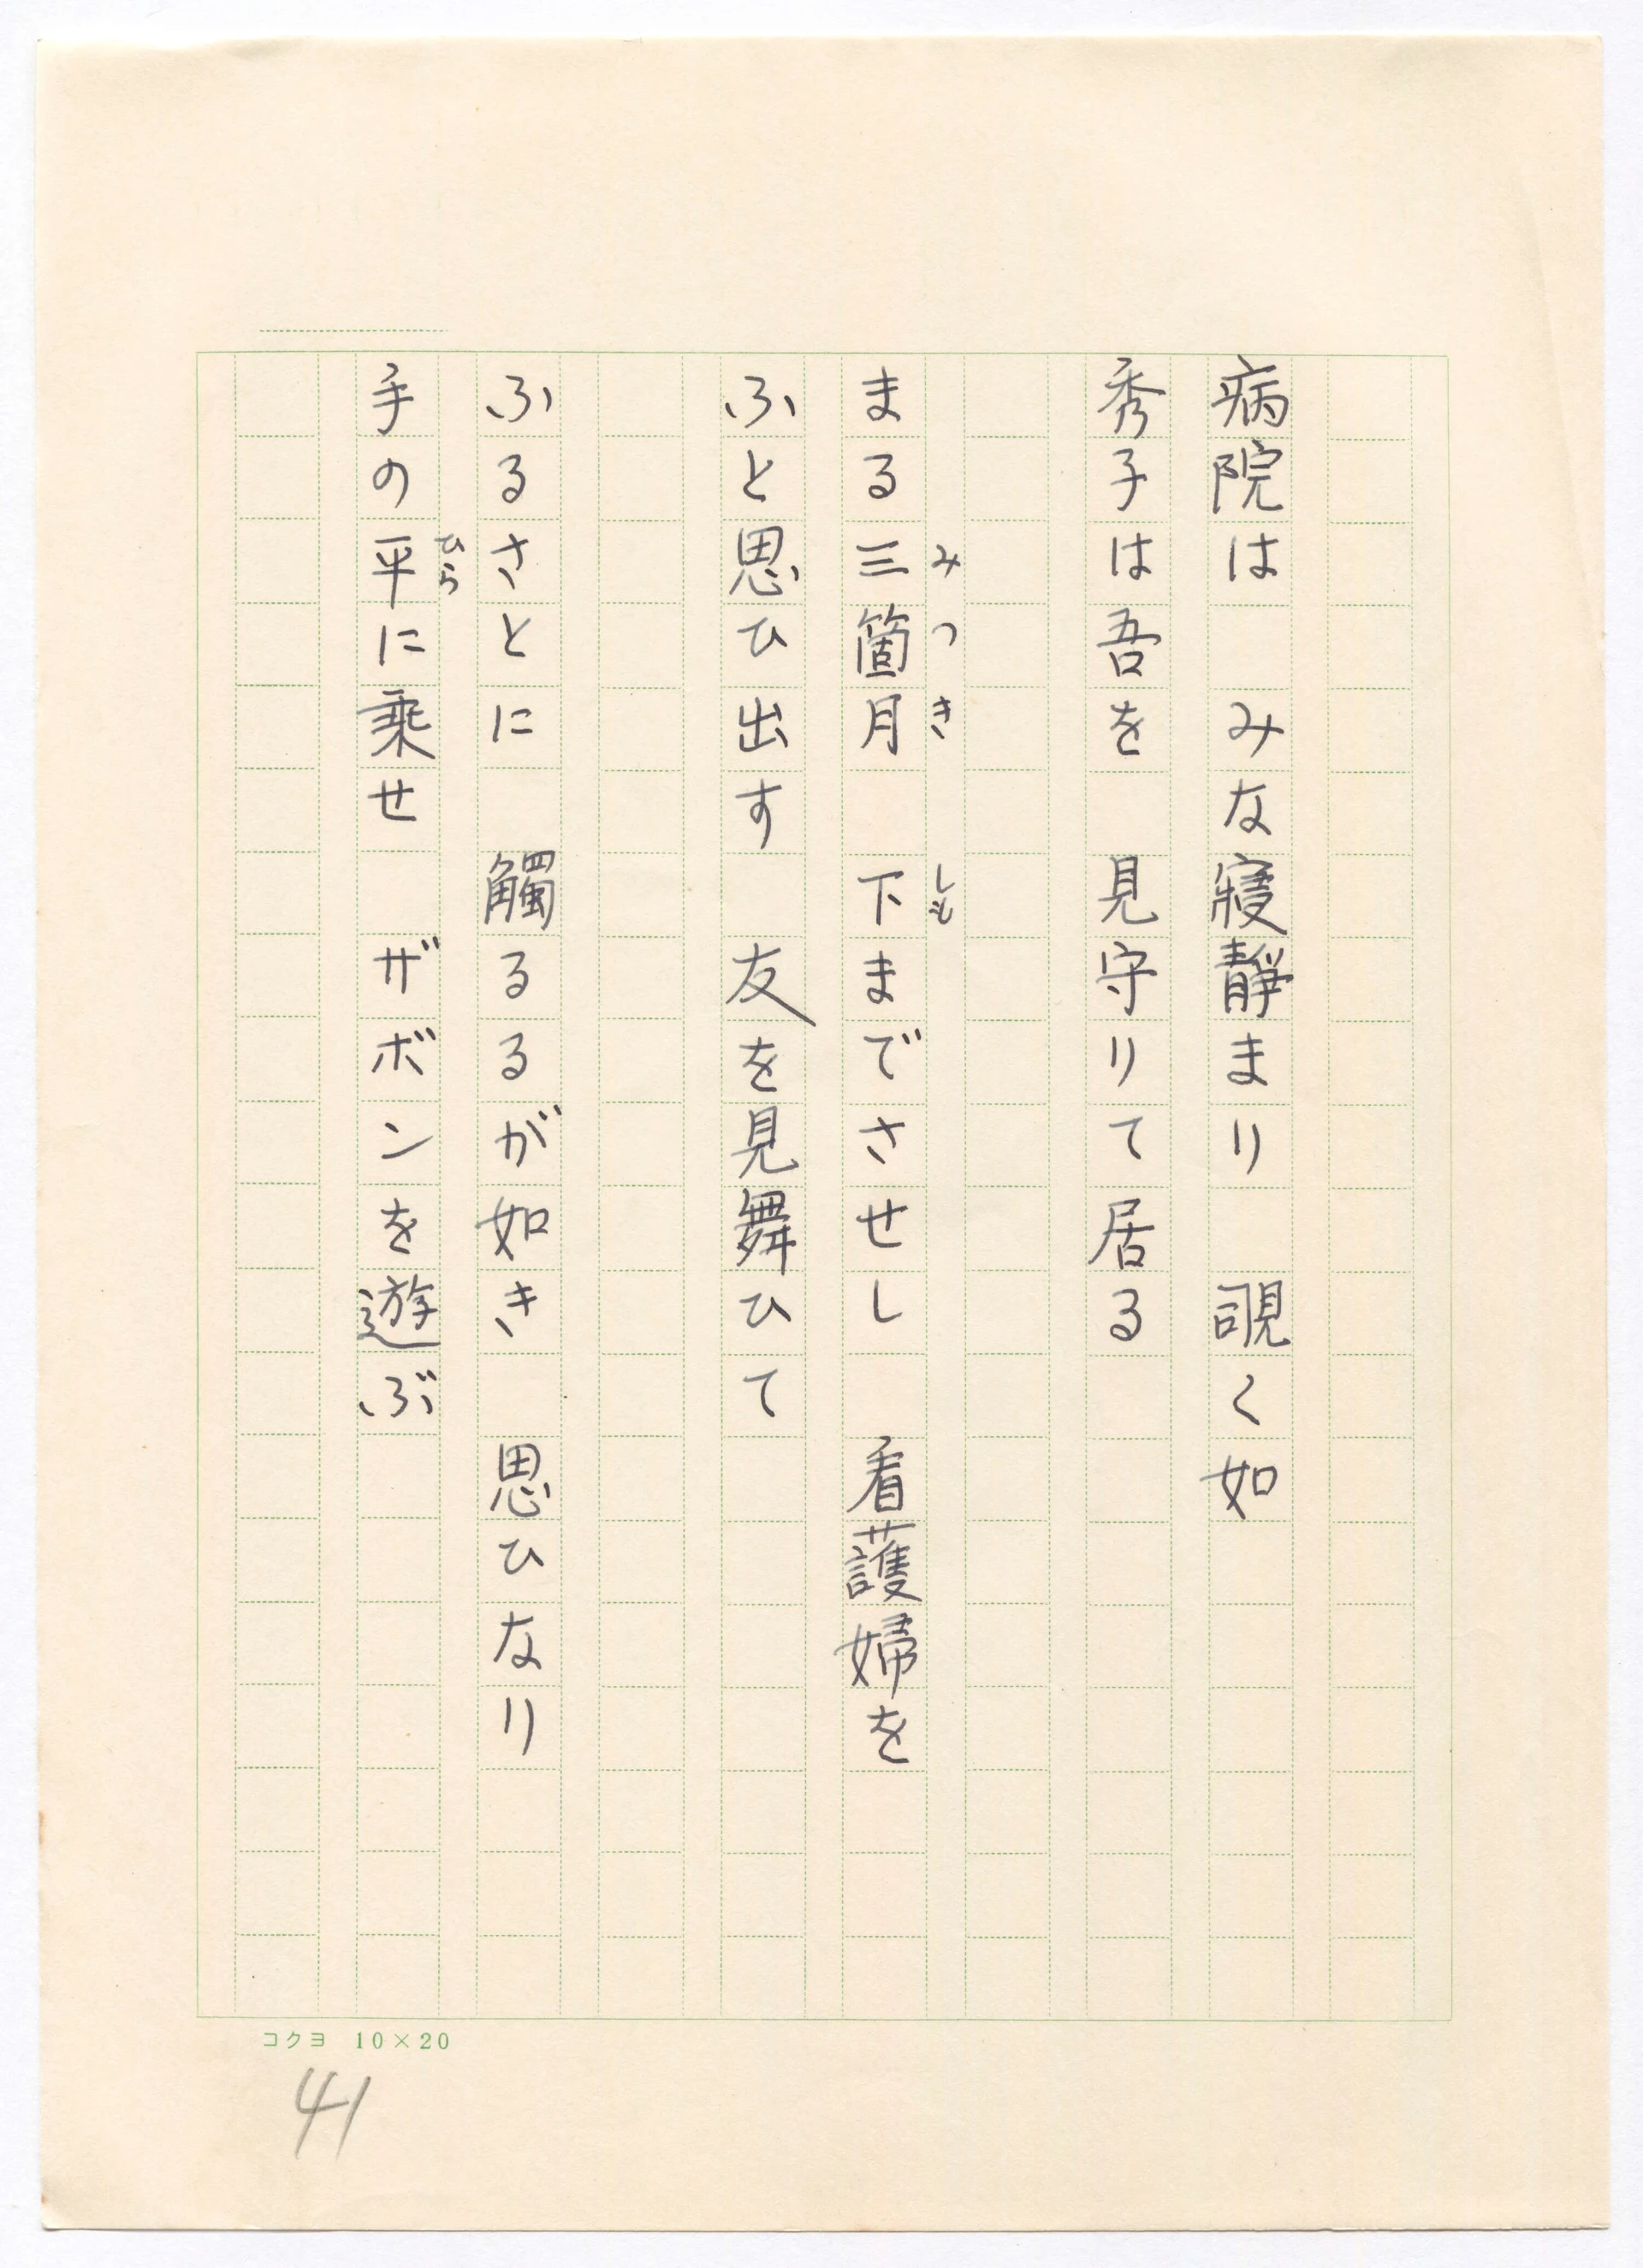 病院は　みな寢靜まり　覗く如
秀子は吾を　見守りて居る
まる三箇月　下までさせし　看護婦を
みつき　しも
ふと思ひ出す　友を見舞ひて
ふるさとに　觸るるが如き　思ひなり
手の平に乗せ　ザボンを遊ぶ
ひら
コクヨ 10×20
41